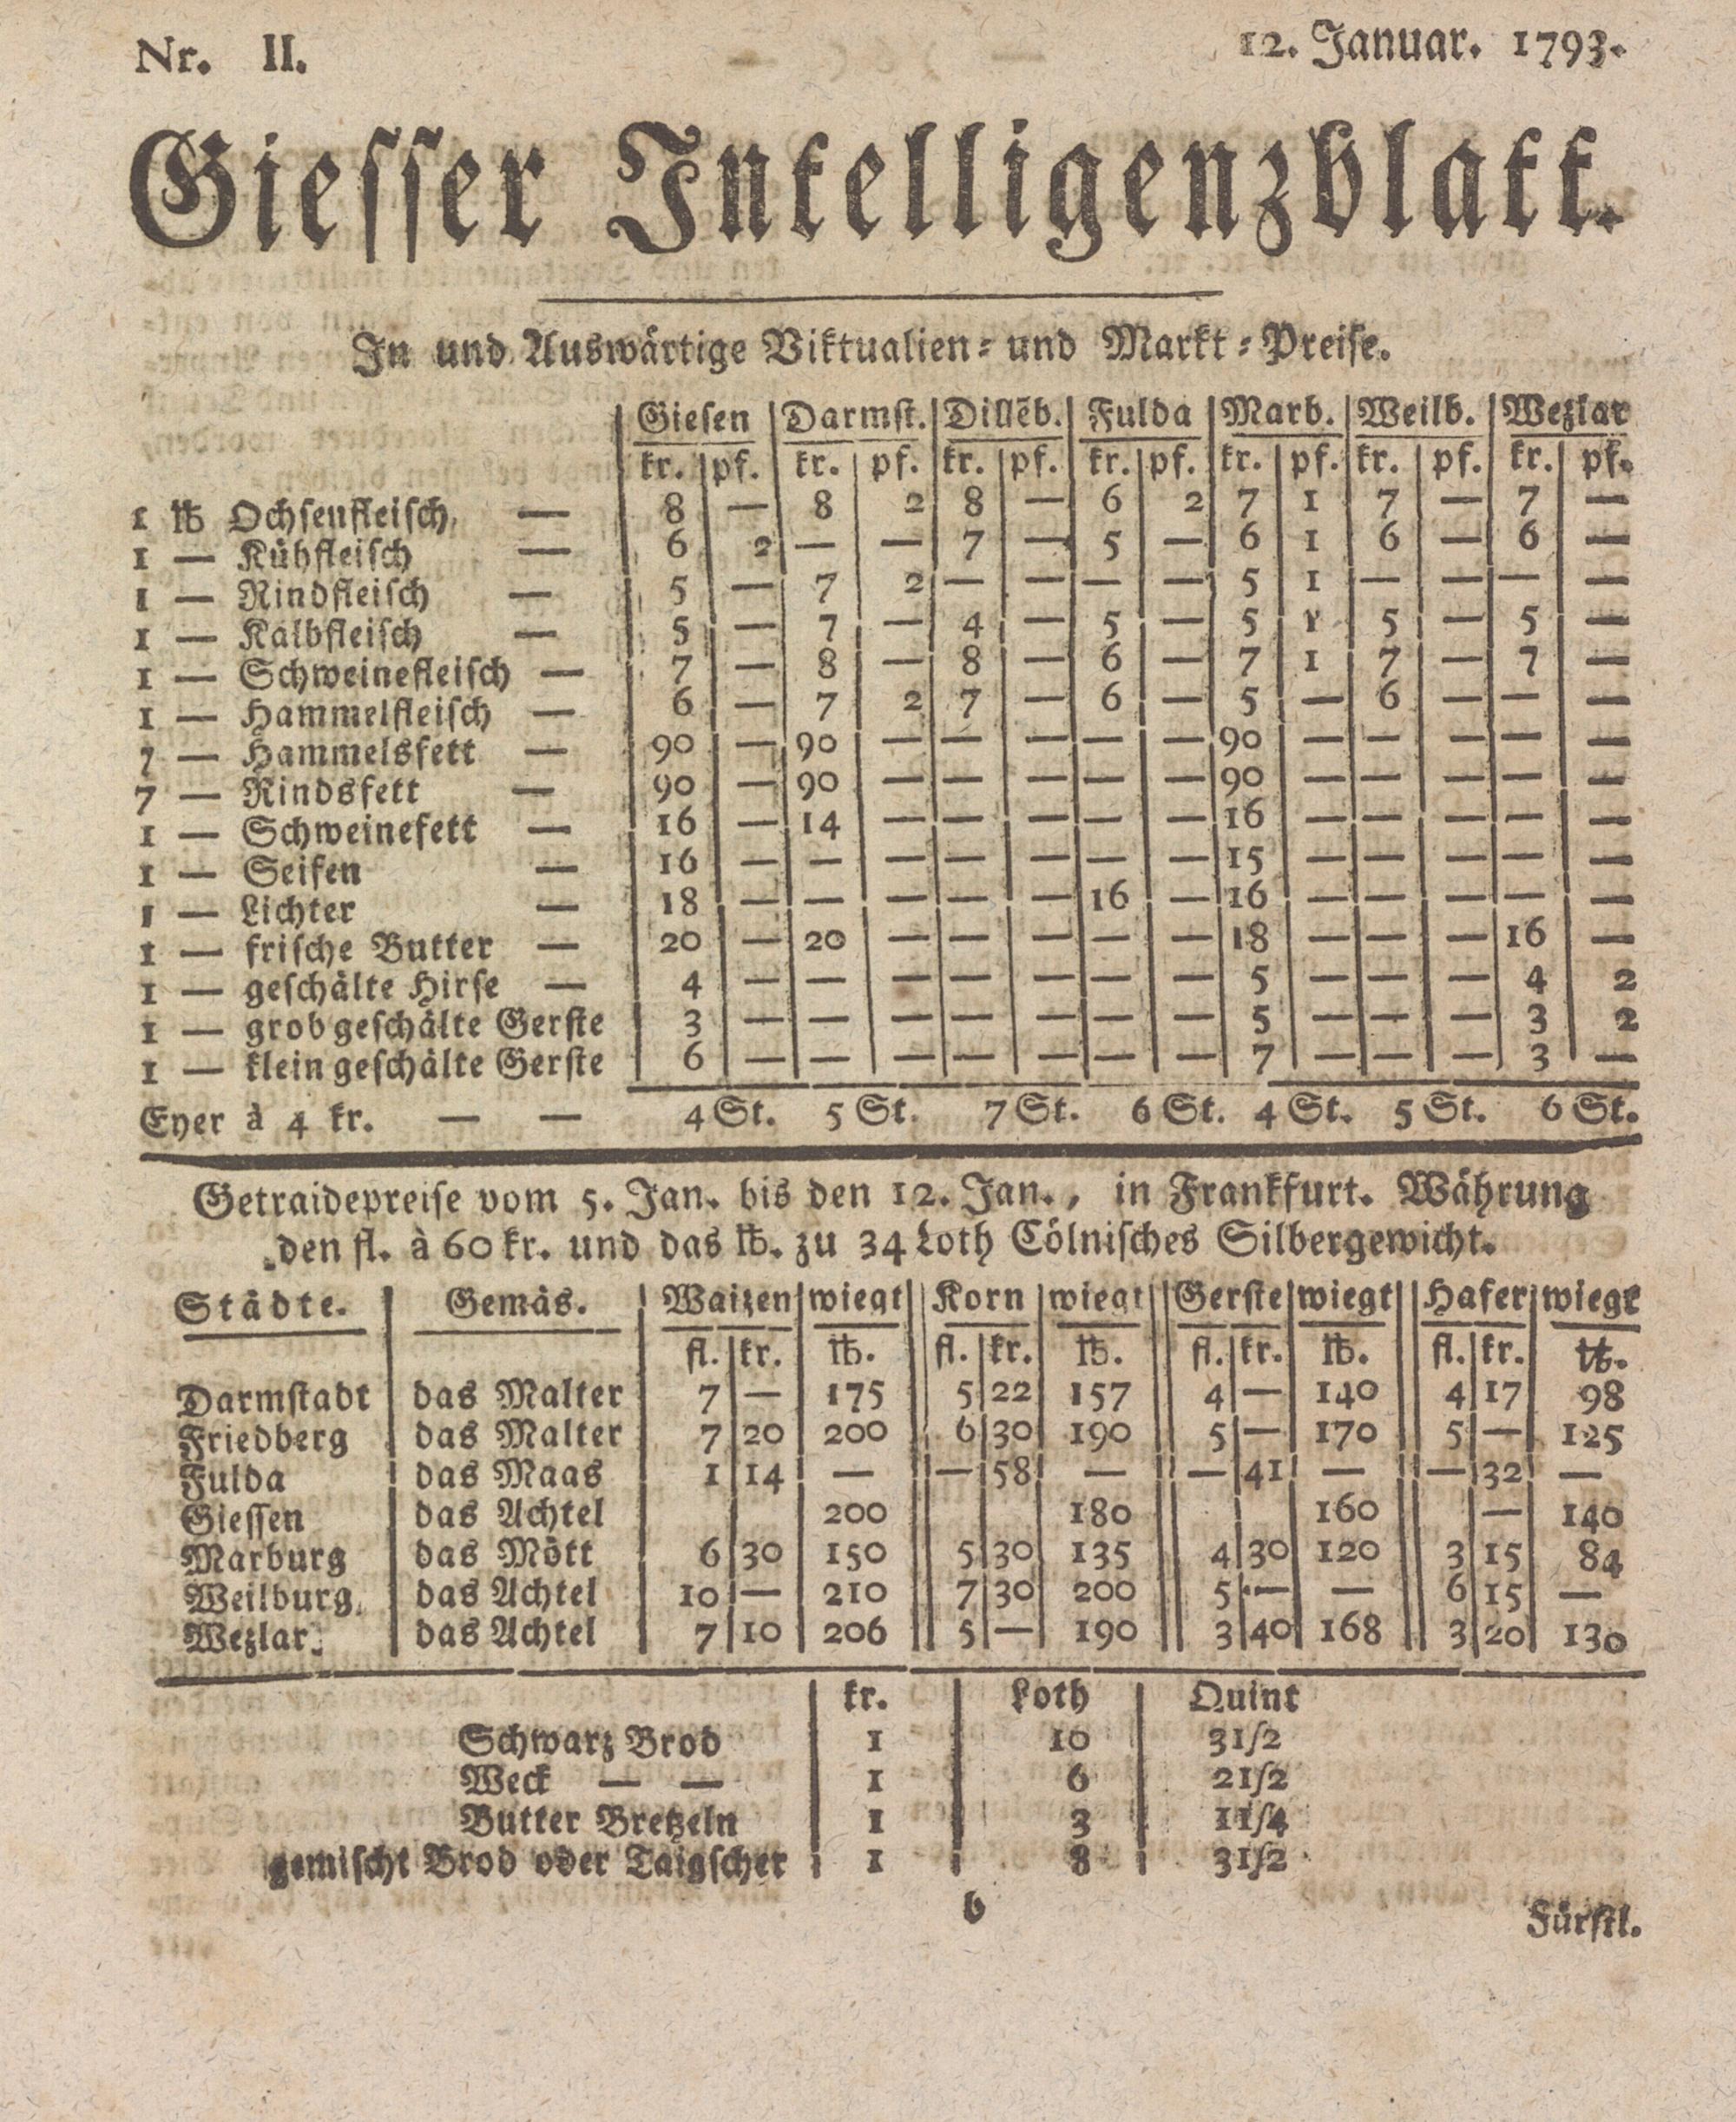 Nr. II. 12. Januar. 1793.
Giesser Intelligenzblatt.
In und Auswärtige Viktualien- und Markt-Preise.
Giesen Darmst. Dillēb. Fulda Marb. Weilb. Wezlar
kr. pf. kr. pf. kr. pf. kr. pf. kr. pf. kr. pf. kr. pf.
1 ℔ Ochsenfleisch — 8 — 8 2 8 — 6 2 7 1 7 — 7 —
1 — Kühfleisch — 6 2 — — 7 — 5 — 6 1 6 — 6 —
1 — Rindfleisch — 5 — 7 2 — — — — 5 1 — — — —
1 — Kalbfleisch — 5 — 7 — 4 — 5 — 5 1 5 — 5 —
1 — Schweinefleisch — 7 — 8 — 8 — 6 — 7 1 7 — 7 —
1 — Hammelfleisch — 6 — 7 2 7 — 6 — 5 — 6 — — —
7 — Hammelsfett — 90 — 90 — — — — — 90 — — — — —
7 — Rindsfett — 90 — 90 — — — — — 90 — — — — —
1 — Schweinefett — 16 — 14 — — — — — 16 — — — — —
1 — Seifen — 16 — — — — — — — 15 — — — — —
1 — Lichter — 18 — — — — — 16 — 16 — — — — —
1 — frische Butter — 20 — 20 — — — — — 18 — — — 16 —
1 — geschälte Hirse — 4 — — — — — — — 5 — — — 4 2
1 — grob geschälte Gerste 3 — — — — — — — 5 — — — 3 2
1 — klein geschälte Gerste 6 — — — — — — — 7 — — — 3 —
Eyer à 4 kr. — — 4 St. 5 St. 7 St. 6 St. 4 St. 5 St. 6 St.
Getraidepreise vom 5. Jan. bis den 12. Jan., in Frankfurt. Währung
den fl. à 60 kr. und das ℔. zu 34 Loth Cölnisches Silbergewicht.
Städte. Gemäs. Waizen wiegt Korn wiegt Gerste wiegt Hafer wiegt
fl. kr. ℔. fl. kr. ℔. fl. kr. ℔. fl. kr. ℔.
Darmstadt das Malter 7 — 175 5 22 157 4 — 140 4 17 98
Friedberg das Malter 7 20 200 6 30 190 5 — 170 5 — 125
Fulda das Maas 1 14 — — 58 — — 41 — — 32 —
Giessen das Achtel 200 180 160 — 140
Marburg das Mött 6 30 150 5 30 135 4 30 120 3 15 84
Weilburg. das Achtel 10 — 210 7 30 200 5 — — 6 15 —
Wezlar. das Achtel 7 10 206 5 — 190 3 40 168 3 20 130
kr. Loth Quint
Schwarz Brod 1 10 3 1/2
Weck — — 1 6 2 1/2
Butter Bretzeln 1 3 1 1/4
gemischt Brod oder Taigscher 1 8 3 1/2
b
Fürstl.